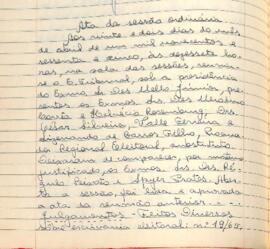 Ata da sessão ordinária
Aos vinte e dois dias do mês
de abril de um mil novecentos e
sessenta e cinco, às dezessete ho-
ras, na sala das sessões, reuniu-
se o E. Tribunal, sob a presidência
do Exmo. Sr. Des. Mello Júnior, pre-
sentes os Exmos. Srs. Des.
Costa e Rosenburg, Drs.
Silveira, Valle Ferreira e
de Barros Filho, Procura-
dor Regional Eleitoral, substituto.
Deixaram de comparecer, por motivo
justificado, os Exmos. Srs. Drs. Ré-
gulo Peixoto e Prates. Aber-
ta a sessão, foi lida e aprovada
a ata da reunião anterior. -
Julgamentos - Feitos Diversos
escrivania eleitoral: n.º 19/64,